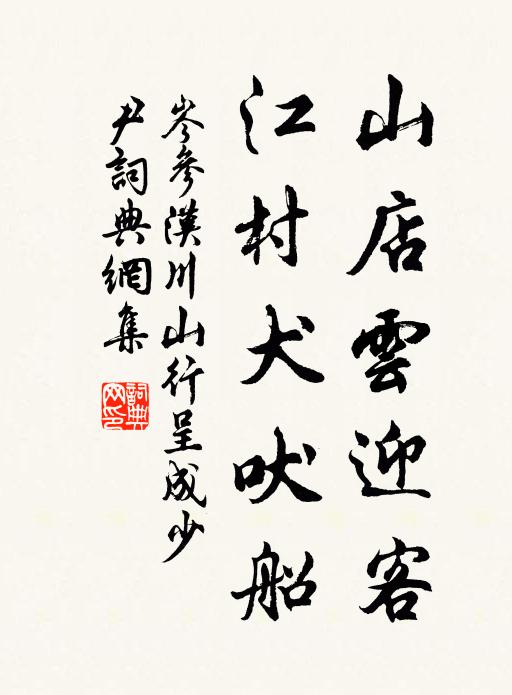 山店雲迎客
江村犬吠船
岑參漢川山行呈成少
尹詞典網集
詞典網印